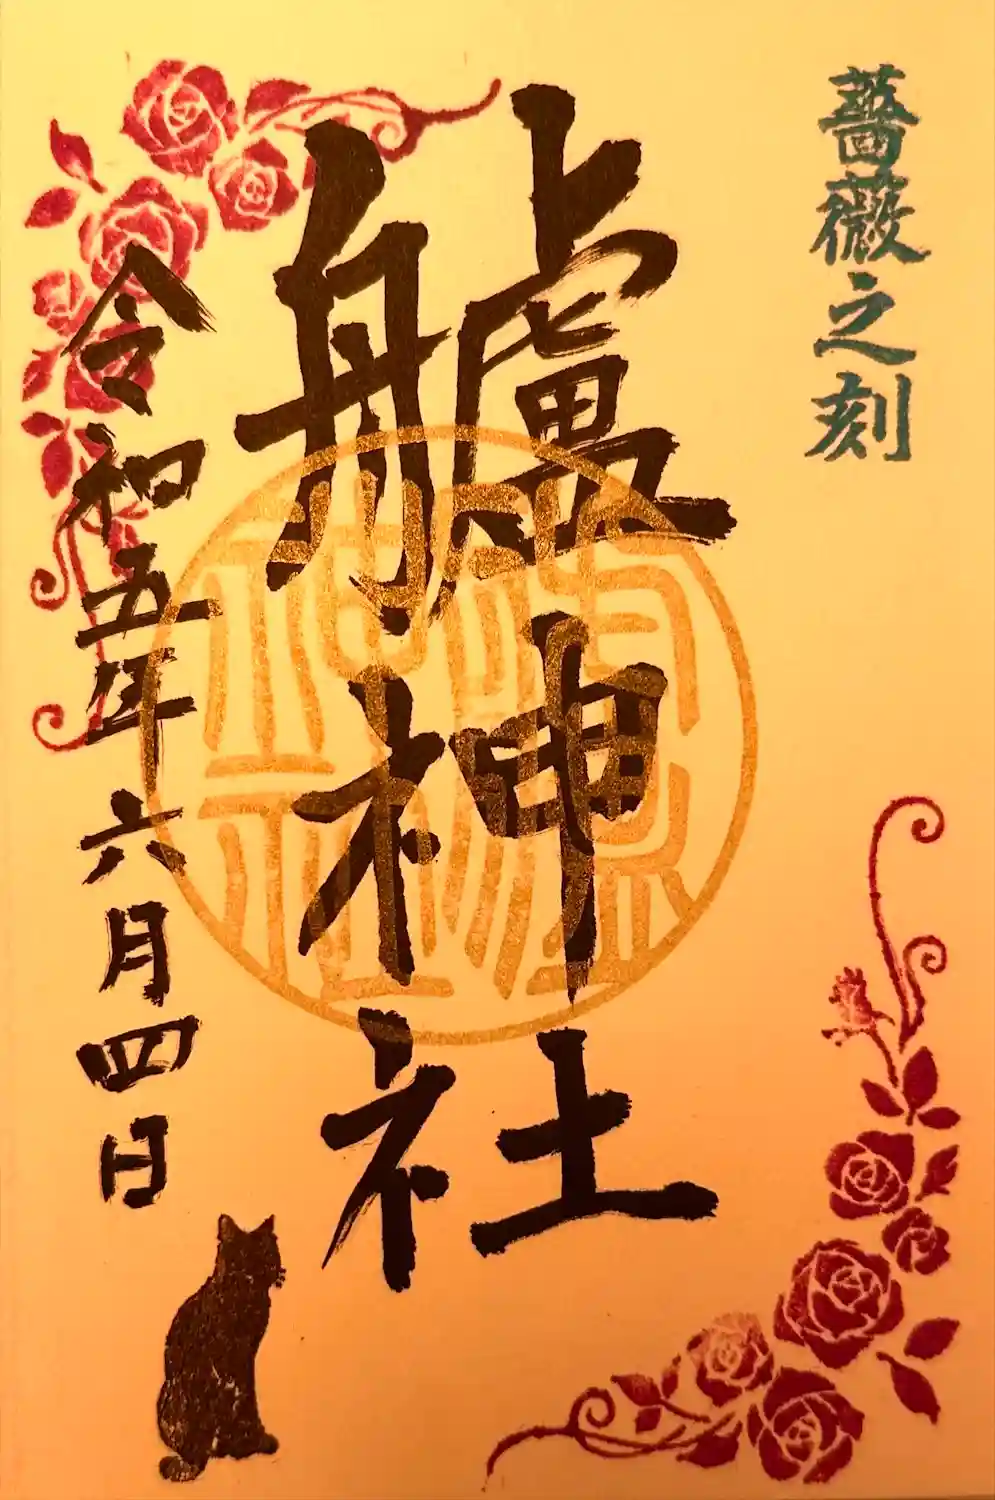 薔薇之刻
艫神社
令和五年六月四日